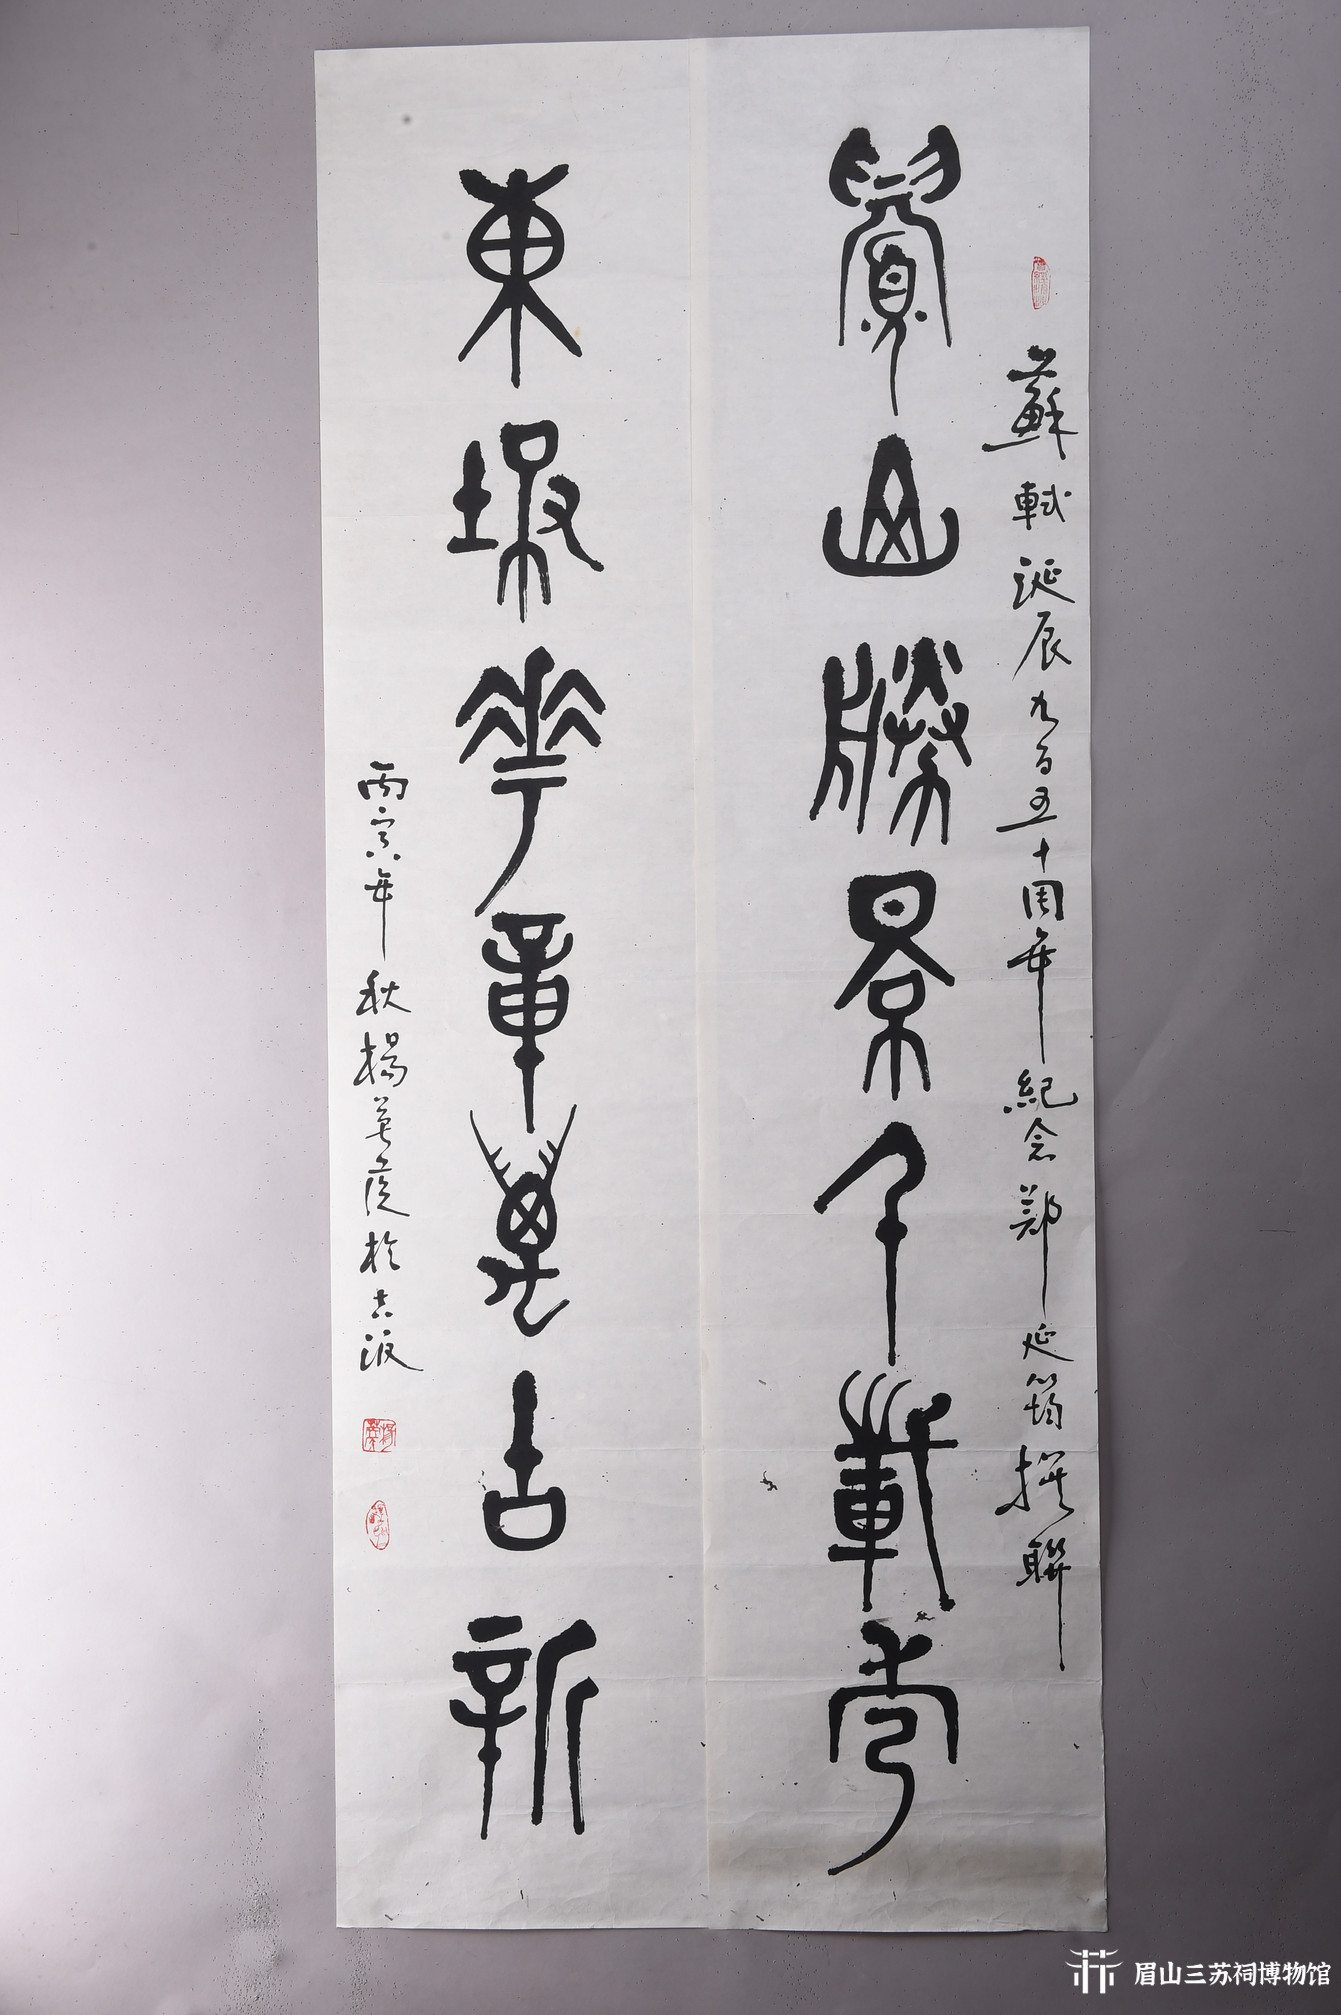 蘇軾誕辰九百五十周年紀念鄭延筠撰聯
眉山勝景千載秀
東坡華章萬古新
丙寅年秋楊於古
眉山三苏祠博物馆